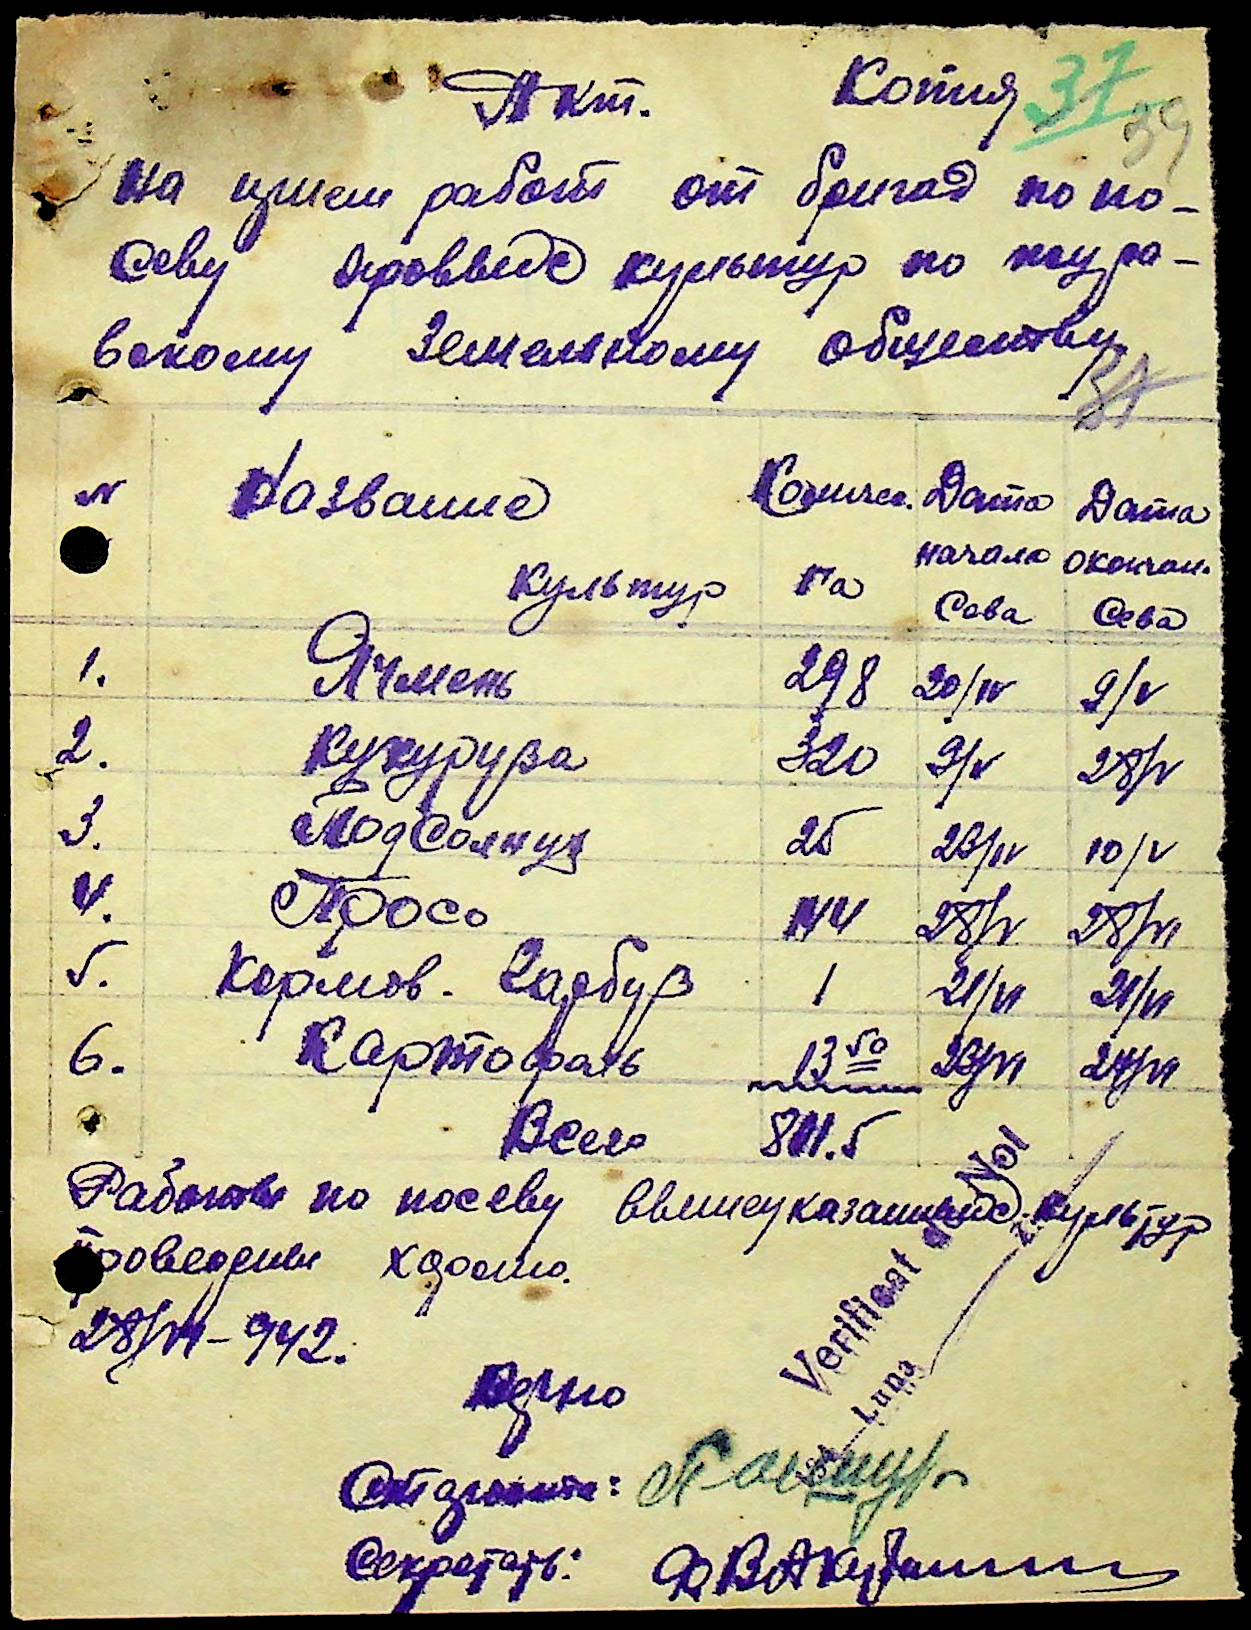 Акт. Копия 37
39
На прием работ от бригад по по-
севу яровых культур по
вскому Земельному обществу
N Название Количес. Дата Дата
начала окончан.
культур га Сева Сева
1. Ячмень 298 20/IV 9/V
2. Кукуруза 320 9/V 28/V
3. Подсолнух 25 23/IV 10/V
4. Просо 144 28/V 28/VI
5. Кормов. Гарбуз 1 21/VI 21/VI
6. Картофель 13 50 23/VI 24/VI
Всего 801.5
Работы по посеву вышеуказанных культур
проведены хорошо.
28/VI-942.
Верно
Verificat de Noi
Luna
Староста:
Секретарь: